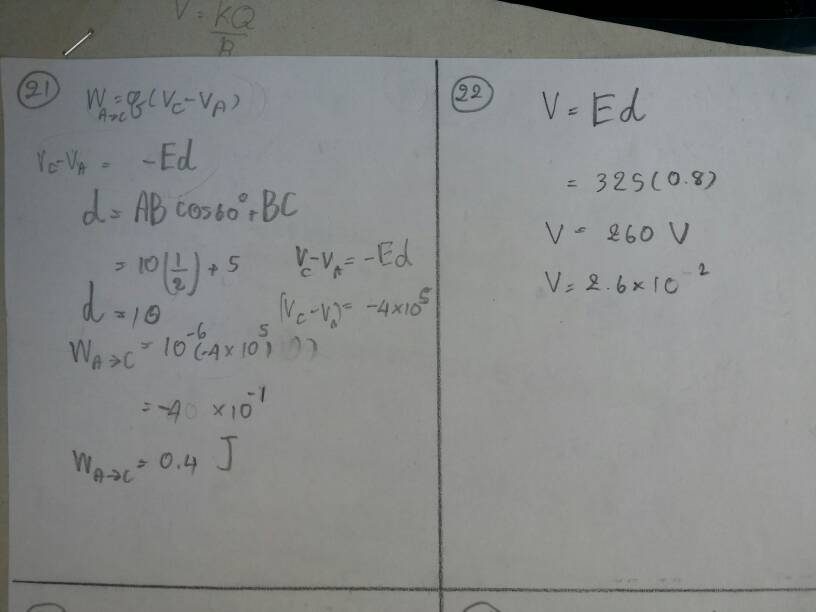 V = KQ
R
21
W A→C = q(VC - VA)
VC - VA = -Ed
d = AB cos60° + BC
= 10(1/2) + 5
d = 10
VC - VA = -Ed
(VC - VA) = -4×10^5
W A→C = 10^-6(-4×10^5)
= -4 ×10^-1
W A→C = 0.4 J
22
V = Ed
= 325(0.8)
V = 260 V
V = 2.6×10^2